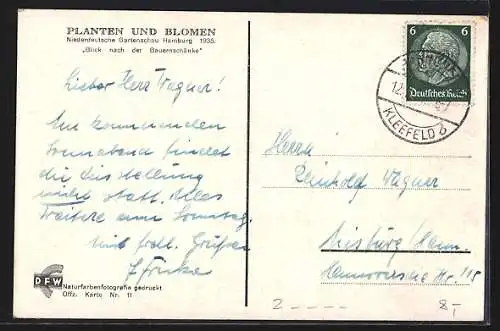 PLANTEN UND BLOMEN
Niederdeutsche Gartenschau Hamburg 1935.
„Blick nach der Bauernschänke"
Lieber Herr Wagner!
Am kommenden
Sonnabend findet
die Ausstellung
nicht statt. Alles
Weitere am Sonntag.
Mit frdl. Grüßen
DFW
Naturfarbenfotografie gedruckt
Offz. Karte Nr. 11
6 6
Deutsches Reich
12.
KLEEFELD
Herrn
Reinhold Wagner
Misburg/Hann.
Hannoversche Str. 115
2 - - - - 8,-